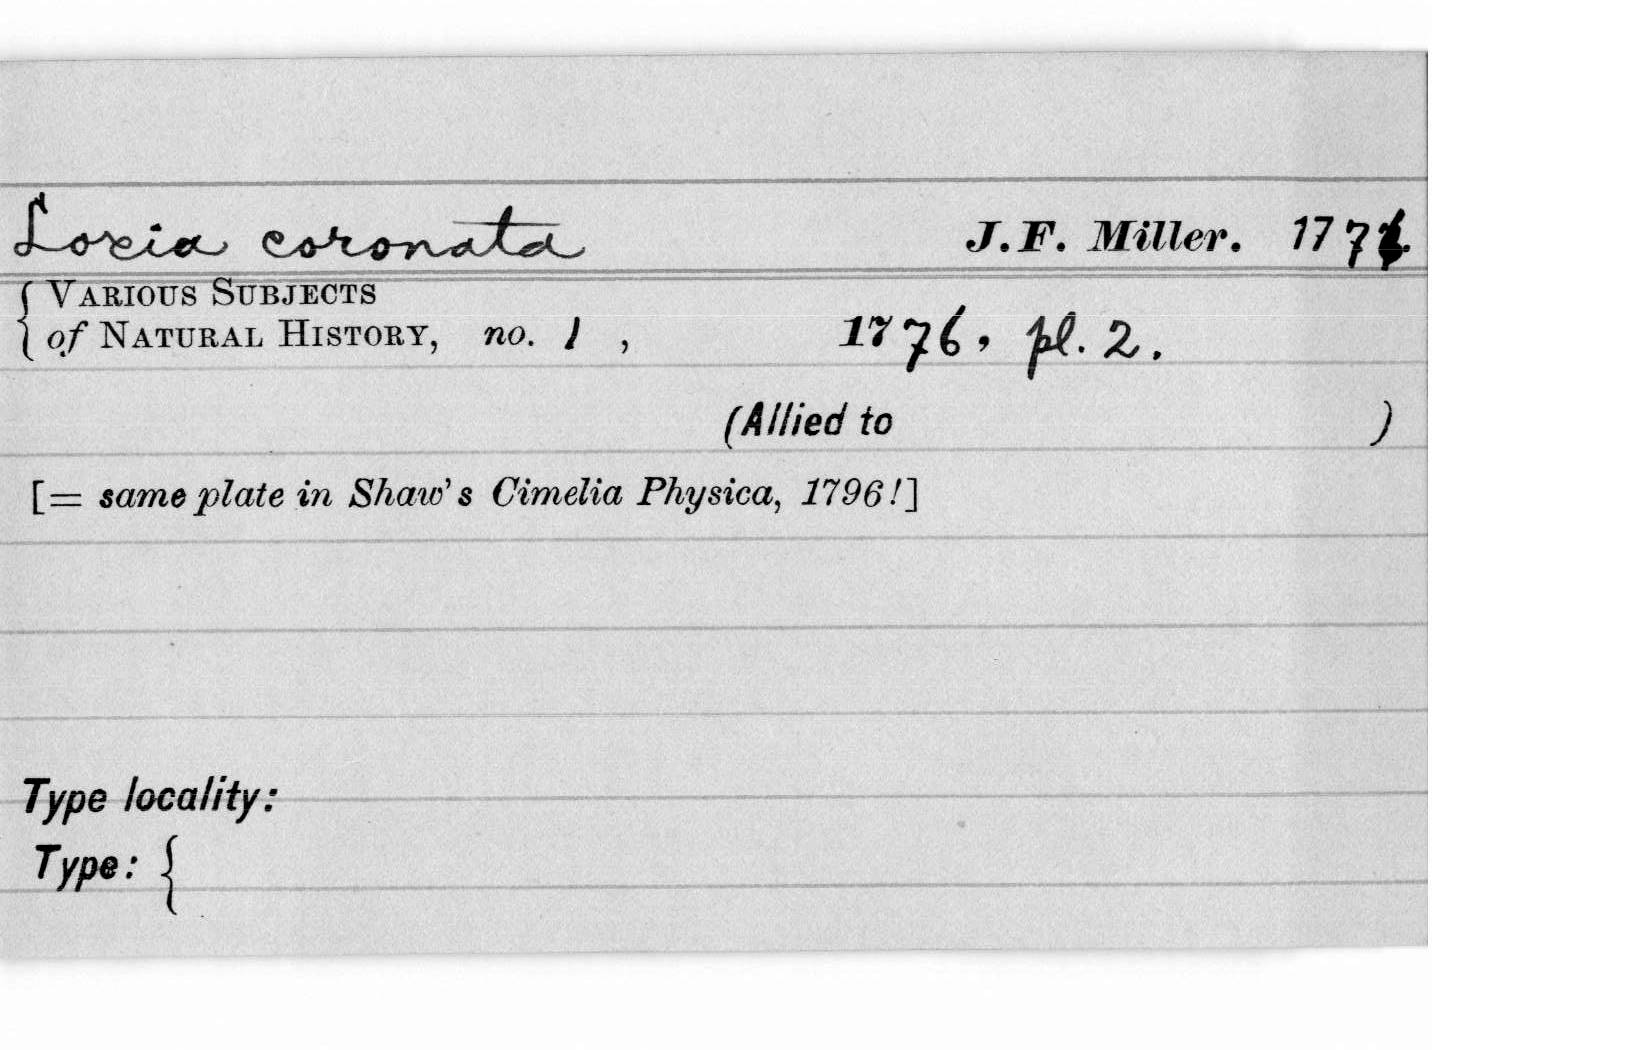 Loxia coronata J. F. Miller. 1776.
{ VARIOUS SUBJECTS
of NATURAL HISTORY, no. 1 , 1776, pl. 2.
(Allied to )
[= same plate in Shaw's Cimelia Physica, 1796!]
Type locality:
Type: {